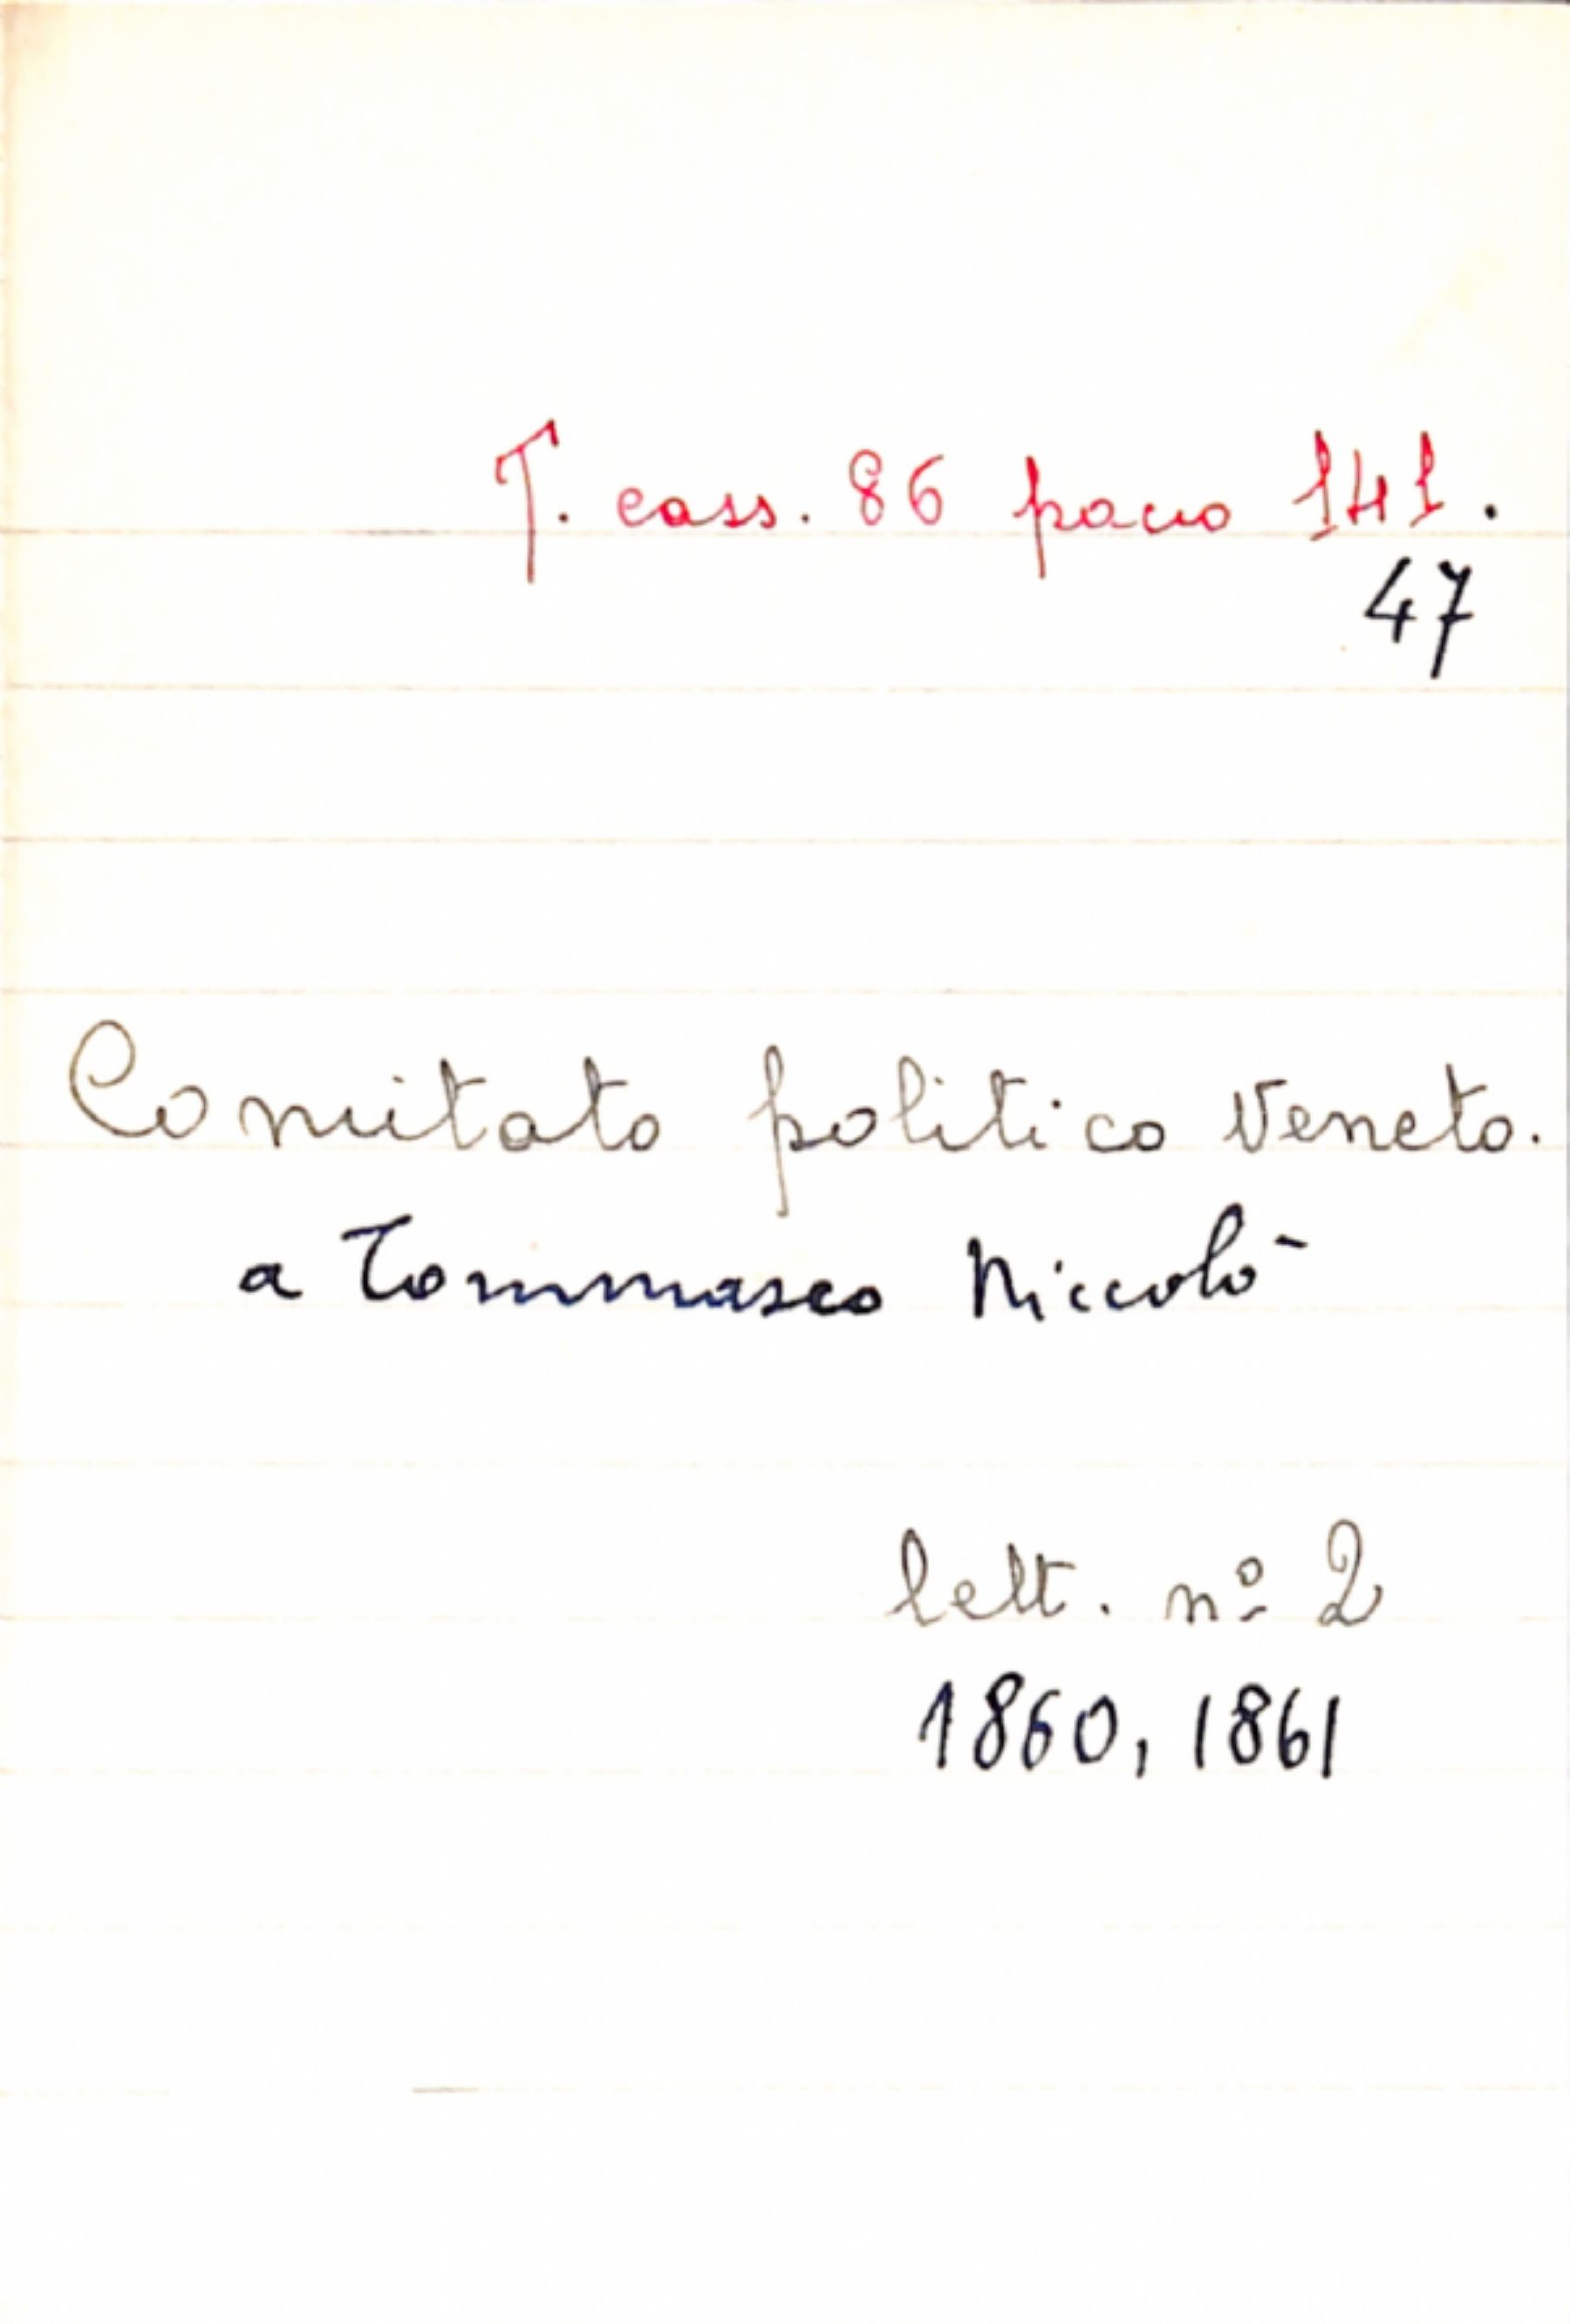 T. cass. 86 pacco 141.
47
Comitato politico Veneto.
a Tommaseo Niccolò
lett. nº 2
1860, 1861